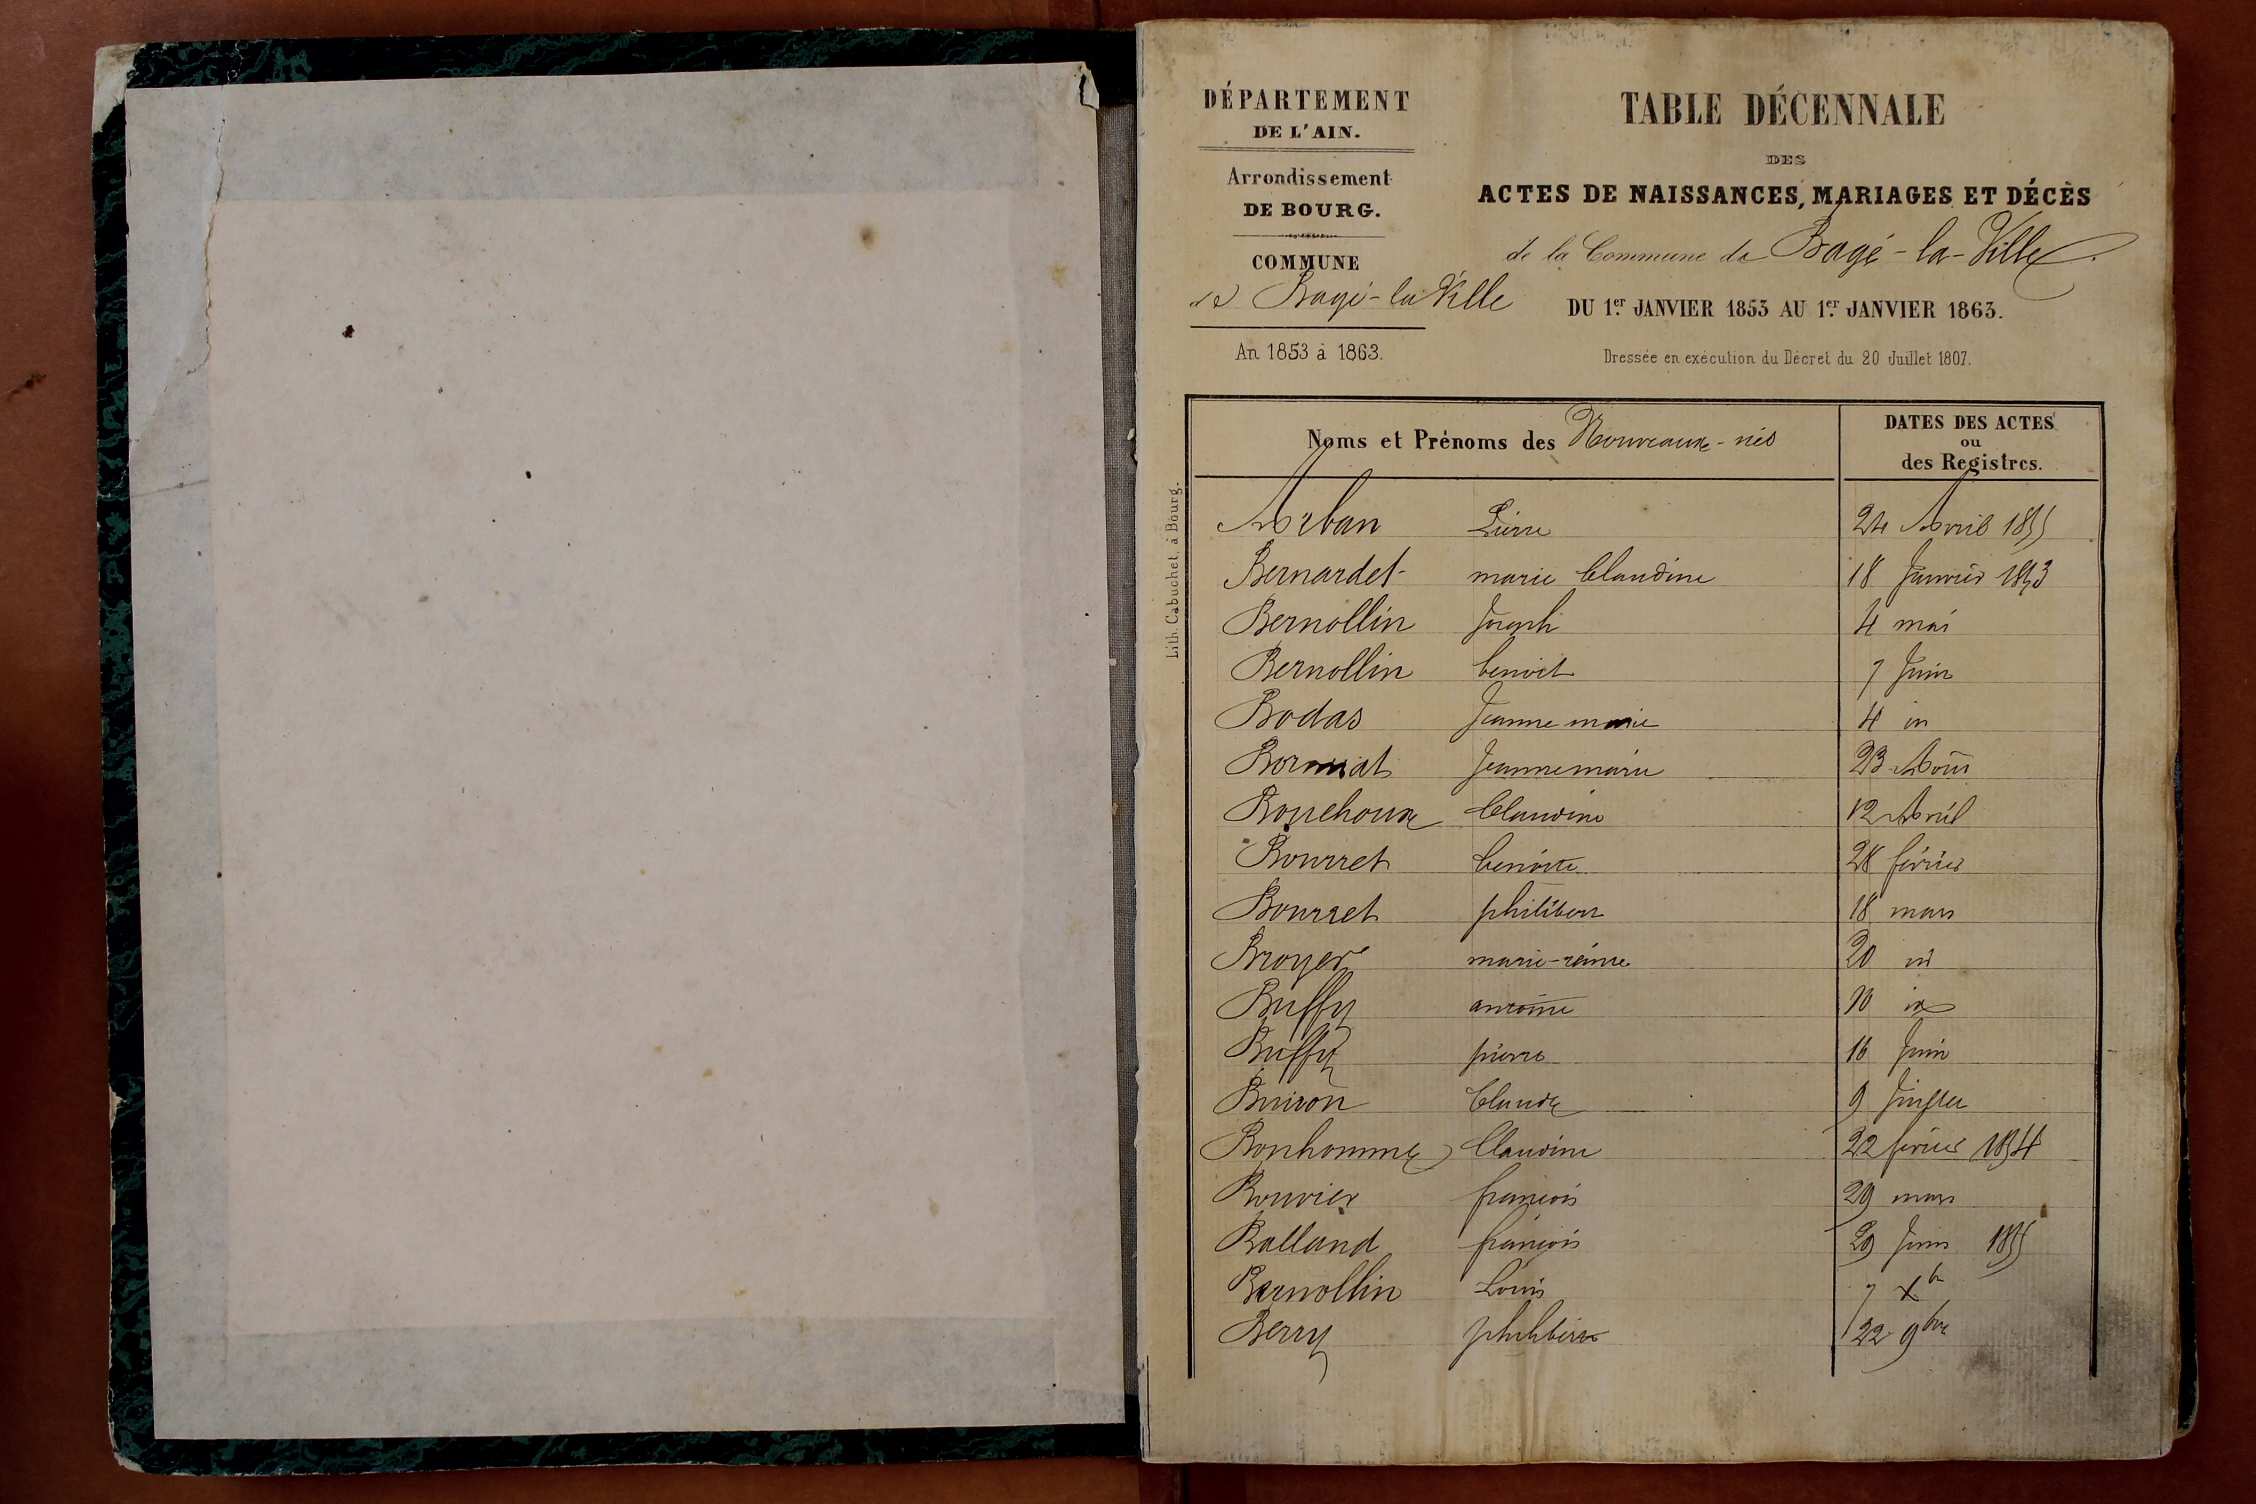 DÉPARTEMENT
DE L'AIN.
Arrondissement
DE BOURG.
COMMUNE
de Bagé-la Ville
An 1853 à 1863.
TABLE DÉCENNALE
DES
ACTES DE NAISSANCES, MARIAGES ET DÉCÈS
de la Commune de Bagé-la-Ville.
DU 1er JANVIER 1853 AU 1er JANVIER 1863.
Dressée en exécution du Décret du 20 Juillet 1807.
Lith. Cabuchet, à Bourg.
Noms et Prénoms des Nouveaux-nés
DATES DES ACTES
ou
des Registres.
Arban Pierre 24 Avril 1855
Bernardet marie Claudine 18 Janvier 1853
Bernollin Joseph 4 mai
Bernollin benoit 7 Juin
Bodas Jeanne marie 4 id
Borniat Jeanne marie 23 Août
Bouchoux Claudine 12 Avril
Bourret benoite 28 février
Bourret philibert 18 mars
Broyer marie-reine 20 id
Buffy antoine 10 id
Buffy pierre 16 Juin
Buiron Claude 9 Juillet
Bonhomme Claudine 22 février 1854
Bouvier françois 29 mars
Balland françois 29 Juin 1855
Bernollin Louis 7 Xbre
Berry philibert 22 9bre